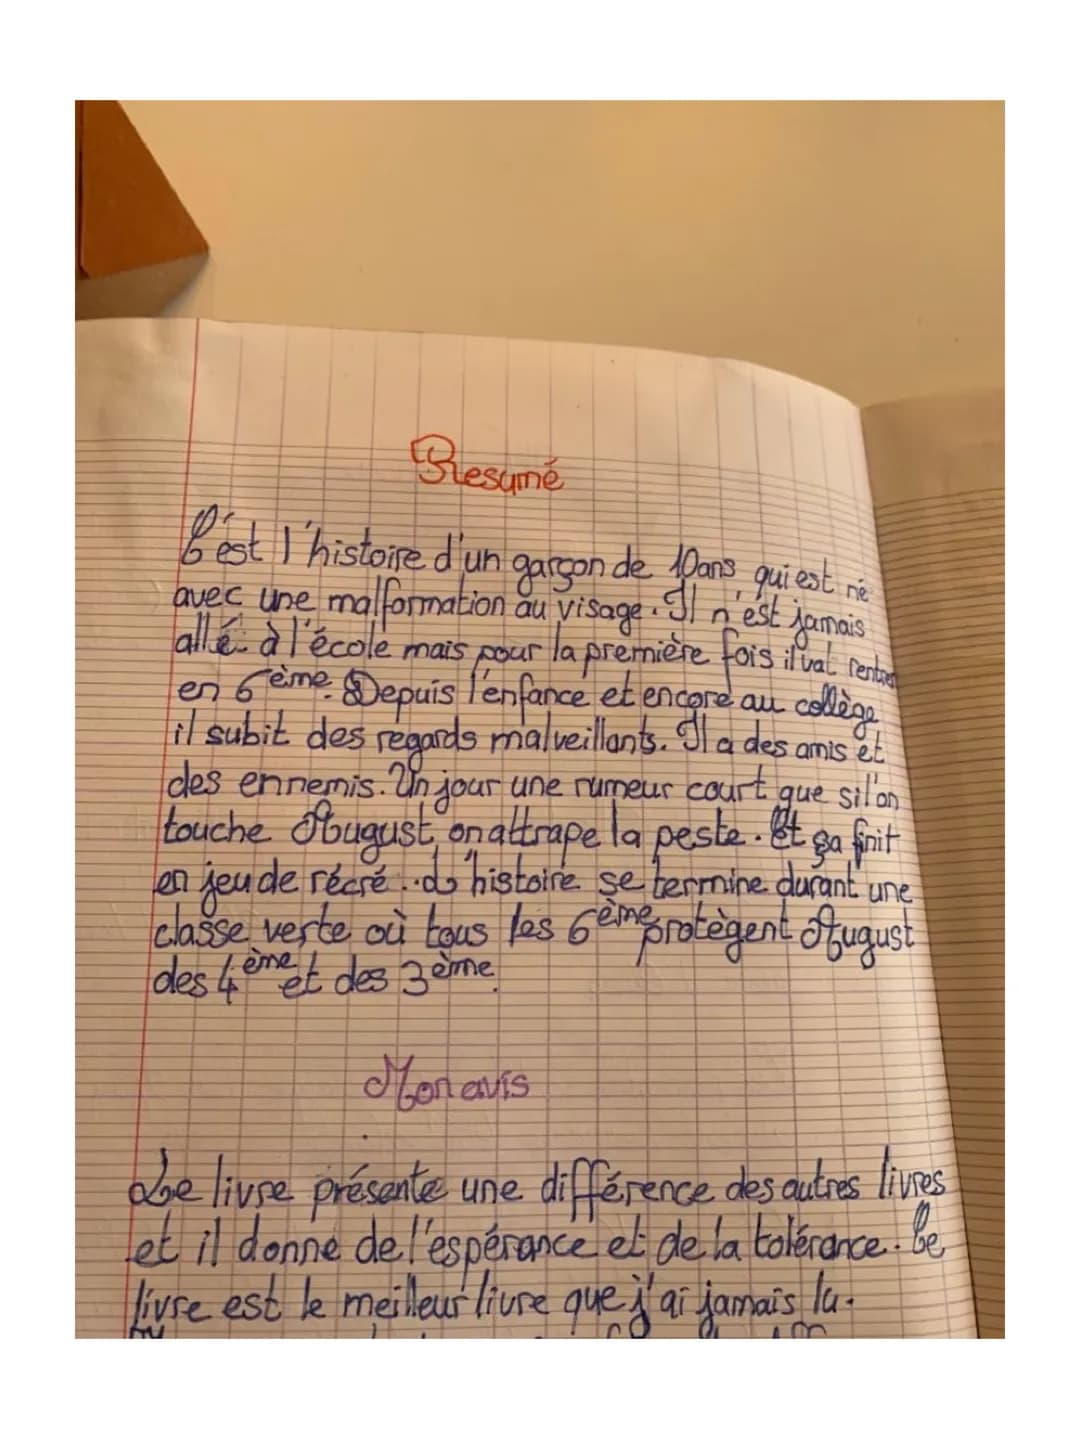 Resumé
C'est l'histoire d'un garçon de 10ans qui est né
avec une malformation au visage. Il n'est jamais
allé à l'école mais pour la première fois il vat rentrer
en 6ème. Depuis l'enfance et encore au collège
il subit des regards malveillants. Il a des amis et
des ennemis. Un jour une rumeur court que si l'on
touche August, on attrape la peste. Et ça finit
en jeu de récré... L'histoire se termine durant une
classe verte où tous les 6ème protègent August
des 4ème et des 3ème.
Mon avis
Le livre présente une différence des autres livres
et il donne de l'espérance et de la tolérance. Ce
livre est le meilleur livre que j'ai jamais lu.